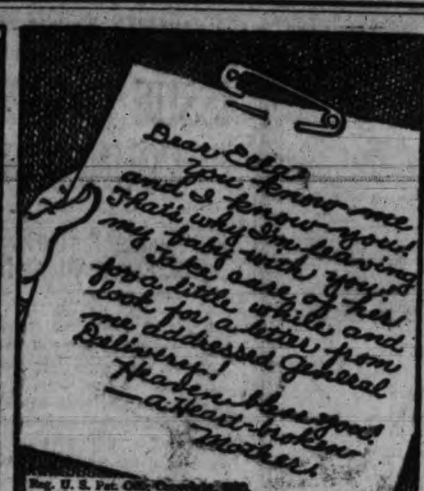 Dear Ella,
You know me
and I know you!
That's why I'm leaving
my baby with you!
Take care of her
for a little while and
look for a letter from
me addressed General
Delivery!
Heaven bless you!
—a Heart-broken
Mother!
Reg. U. S. Pat. Off.